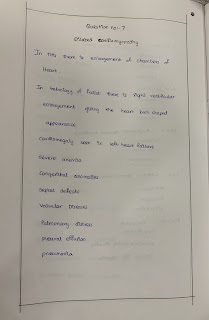 Question no:- 7
Dilated cardiomyopathy
In this there is enlargement of chambers of
heart.
In tetralogy of fallot there is right ventricular
enlargement giving the heart boot shaped
appearance
cardiomegaly seen in left heart failure
severe anemia
congenital anomalies
septal defects
valvular diseases
Pulmonary disease
pleural effusion
pneumonia